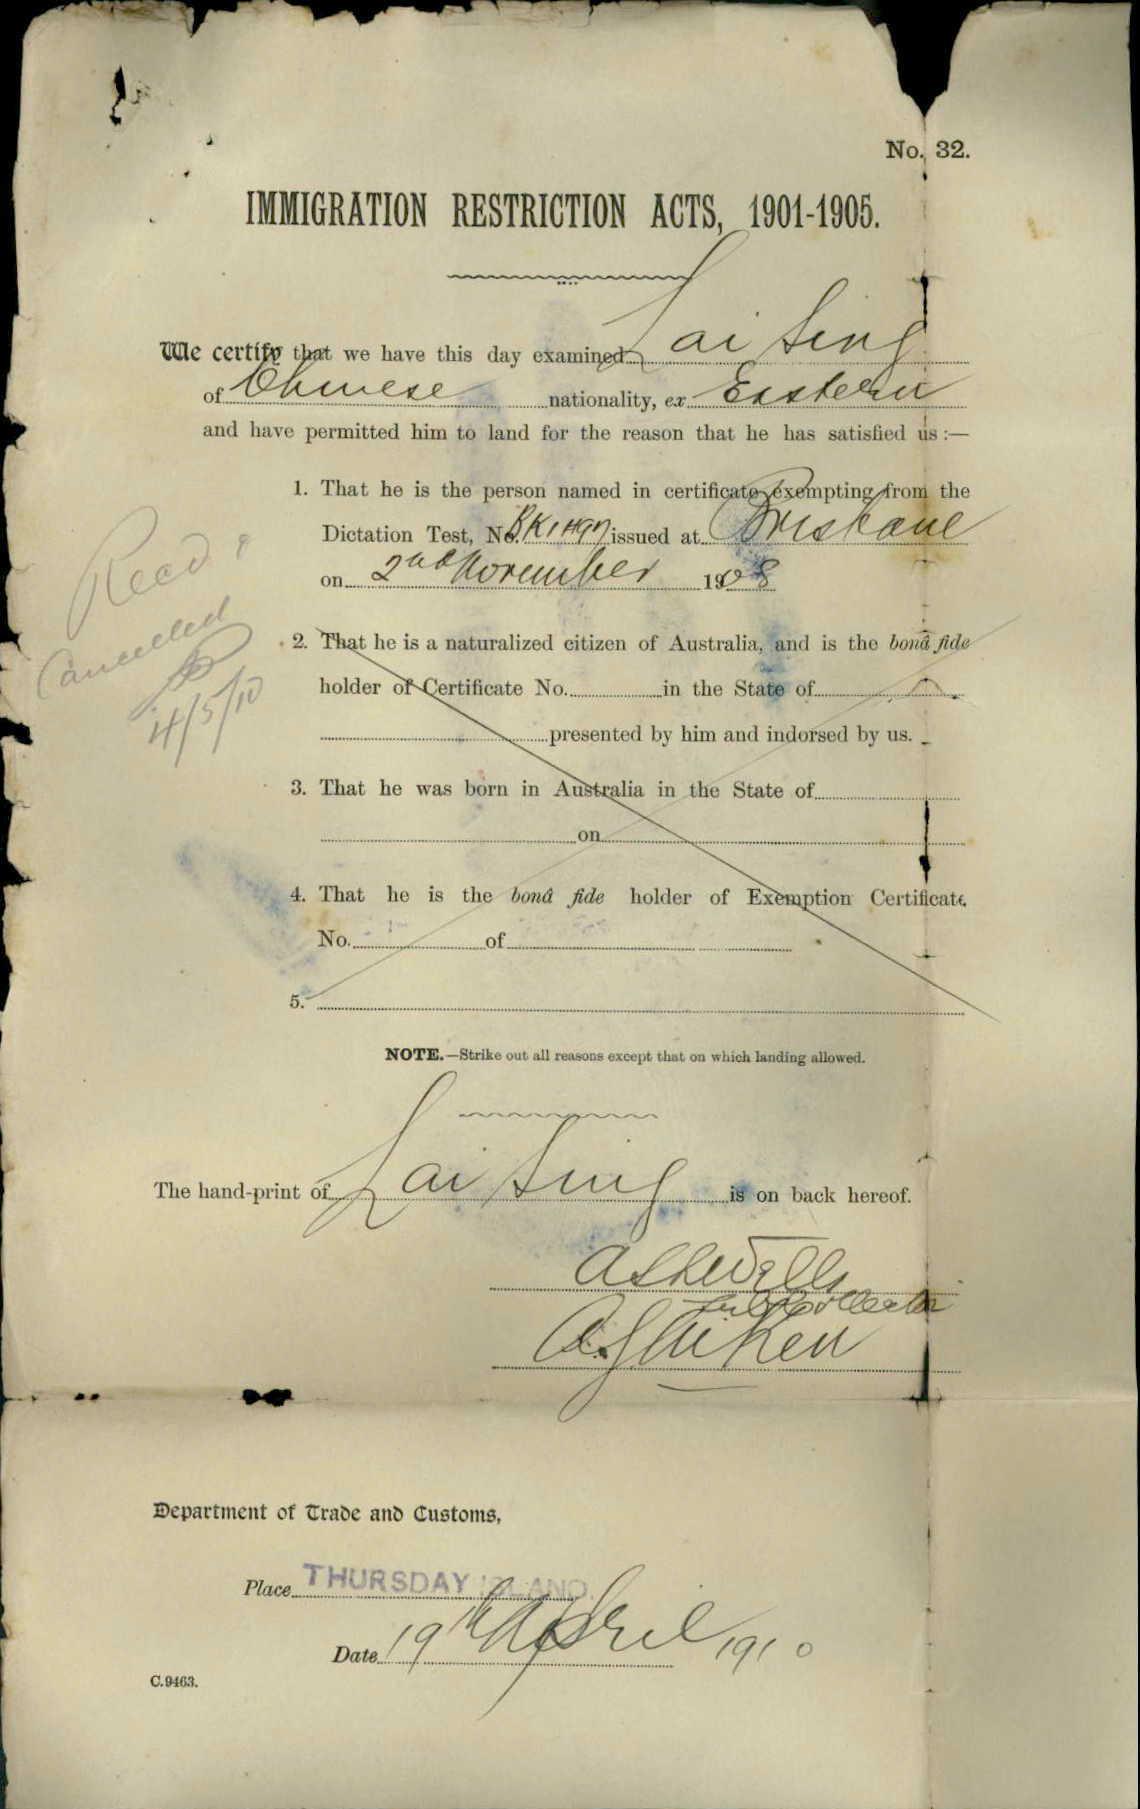 No. 32.
IMMIGRATION RESTRICTION ACTS, 1901-1905.
We certify that we have this day examined Lai Sing
of Chinese nationality, ex Eastern
and have permitted him to land for the reason that he has satisfied us :—
1. That he is the person named in certificate exempting from the
Dictation Test, No. issued at Brisbane
on 2nd November 1908
Recd
Cancelled
4/5/10
2. That he is a naturalized citizen of Australia, and is the bonâ fide
holder of Certificate No. in the State of
presented by him and indorsed by us.
3. That he was born in Australia in the State of
on
4. That he is the bonâ fide holder of Exemption Certificate
No. of
5.
NOTE.—Strike out all reasons except that on which landing allowed.
The hand-print of Lai Sing is on back hereof.
Sub Collector
Department of Trade and Customs,
Place THURSDAY ISLAND.
Date 19th April 1910
C.9463.